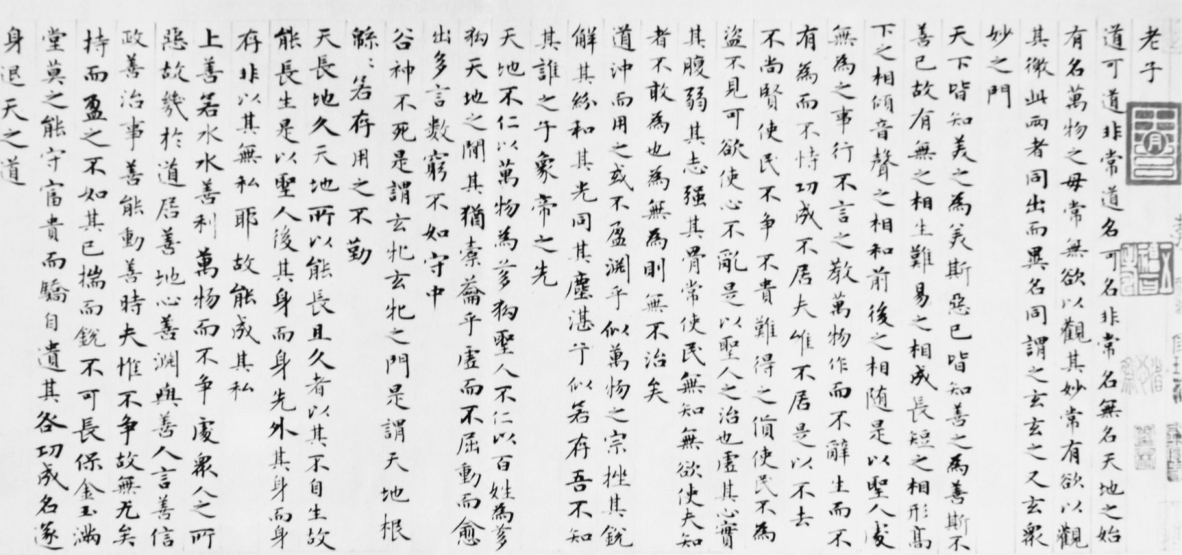 老子
道可道非常道名可名非常名無名天地之始
有名萬物之母常無欲以觀其妙常有欲以觀
其徼此兩者同出而異名同謂之玄玄之又玄衆
妙之門
天下皆知美之為美斯惡已皆知善之為善斯不
善已故有無之相生難易之相成長短之相形高
下之相傾音聲之相和前後之相随是以聖人處
無為之事行不言之教萬物作而不辭生而不
有為而不恃功成不居夫惟不居是以不去
不尚賢使民不争不貴難得之貨使民不為
盜不見可欲使心不亂是以聖人之治也虛其心實
其腹弱其志强其骨常使民無知無欲使夫知
者不敢為也為無為則無不治矣
道沖而用之或不盈淵乎似萬物之宗挫其銳
解其紛和其光同其塵湛乎似若存吾不知
其誰之子象帝之先
天地不仁以萬物為芻狗聖人不仁以百姓為芻
狗天地之間其猶橐籥乎虛而不屈動而愈
出多言數窮不如守中
谷神不死是謂玄牝玄牝之門是謂天地根
緜：若存用之不勤
天長地久天地所以能長且久者以其不自生故
能長生是以聖人後其身而身先外其身而身
存非以其無私耶故能成其私
上善若水水善利萬物而不争處衆人之所
惡故幾於道居善地心善淵與善人言善信
政善治事善能動善時夫惟不争故無尤矣
持而盈之不如其已揣而銳不可長保金玉滿
堂莫之能守富貴而驕自遺其咎功成名遂
身退天之道